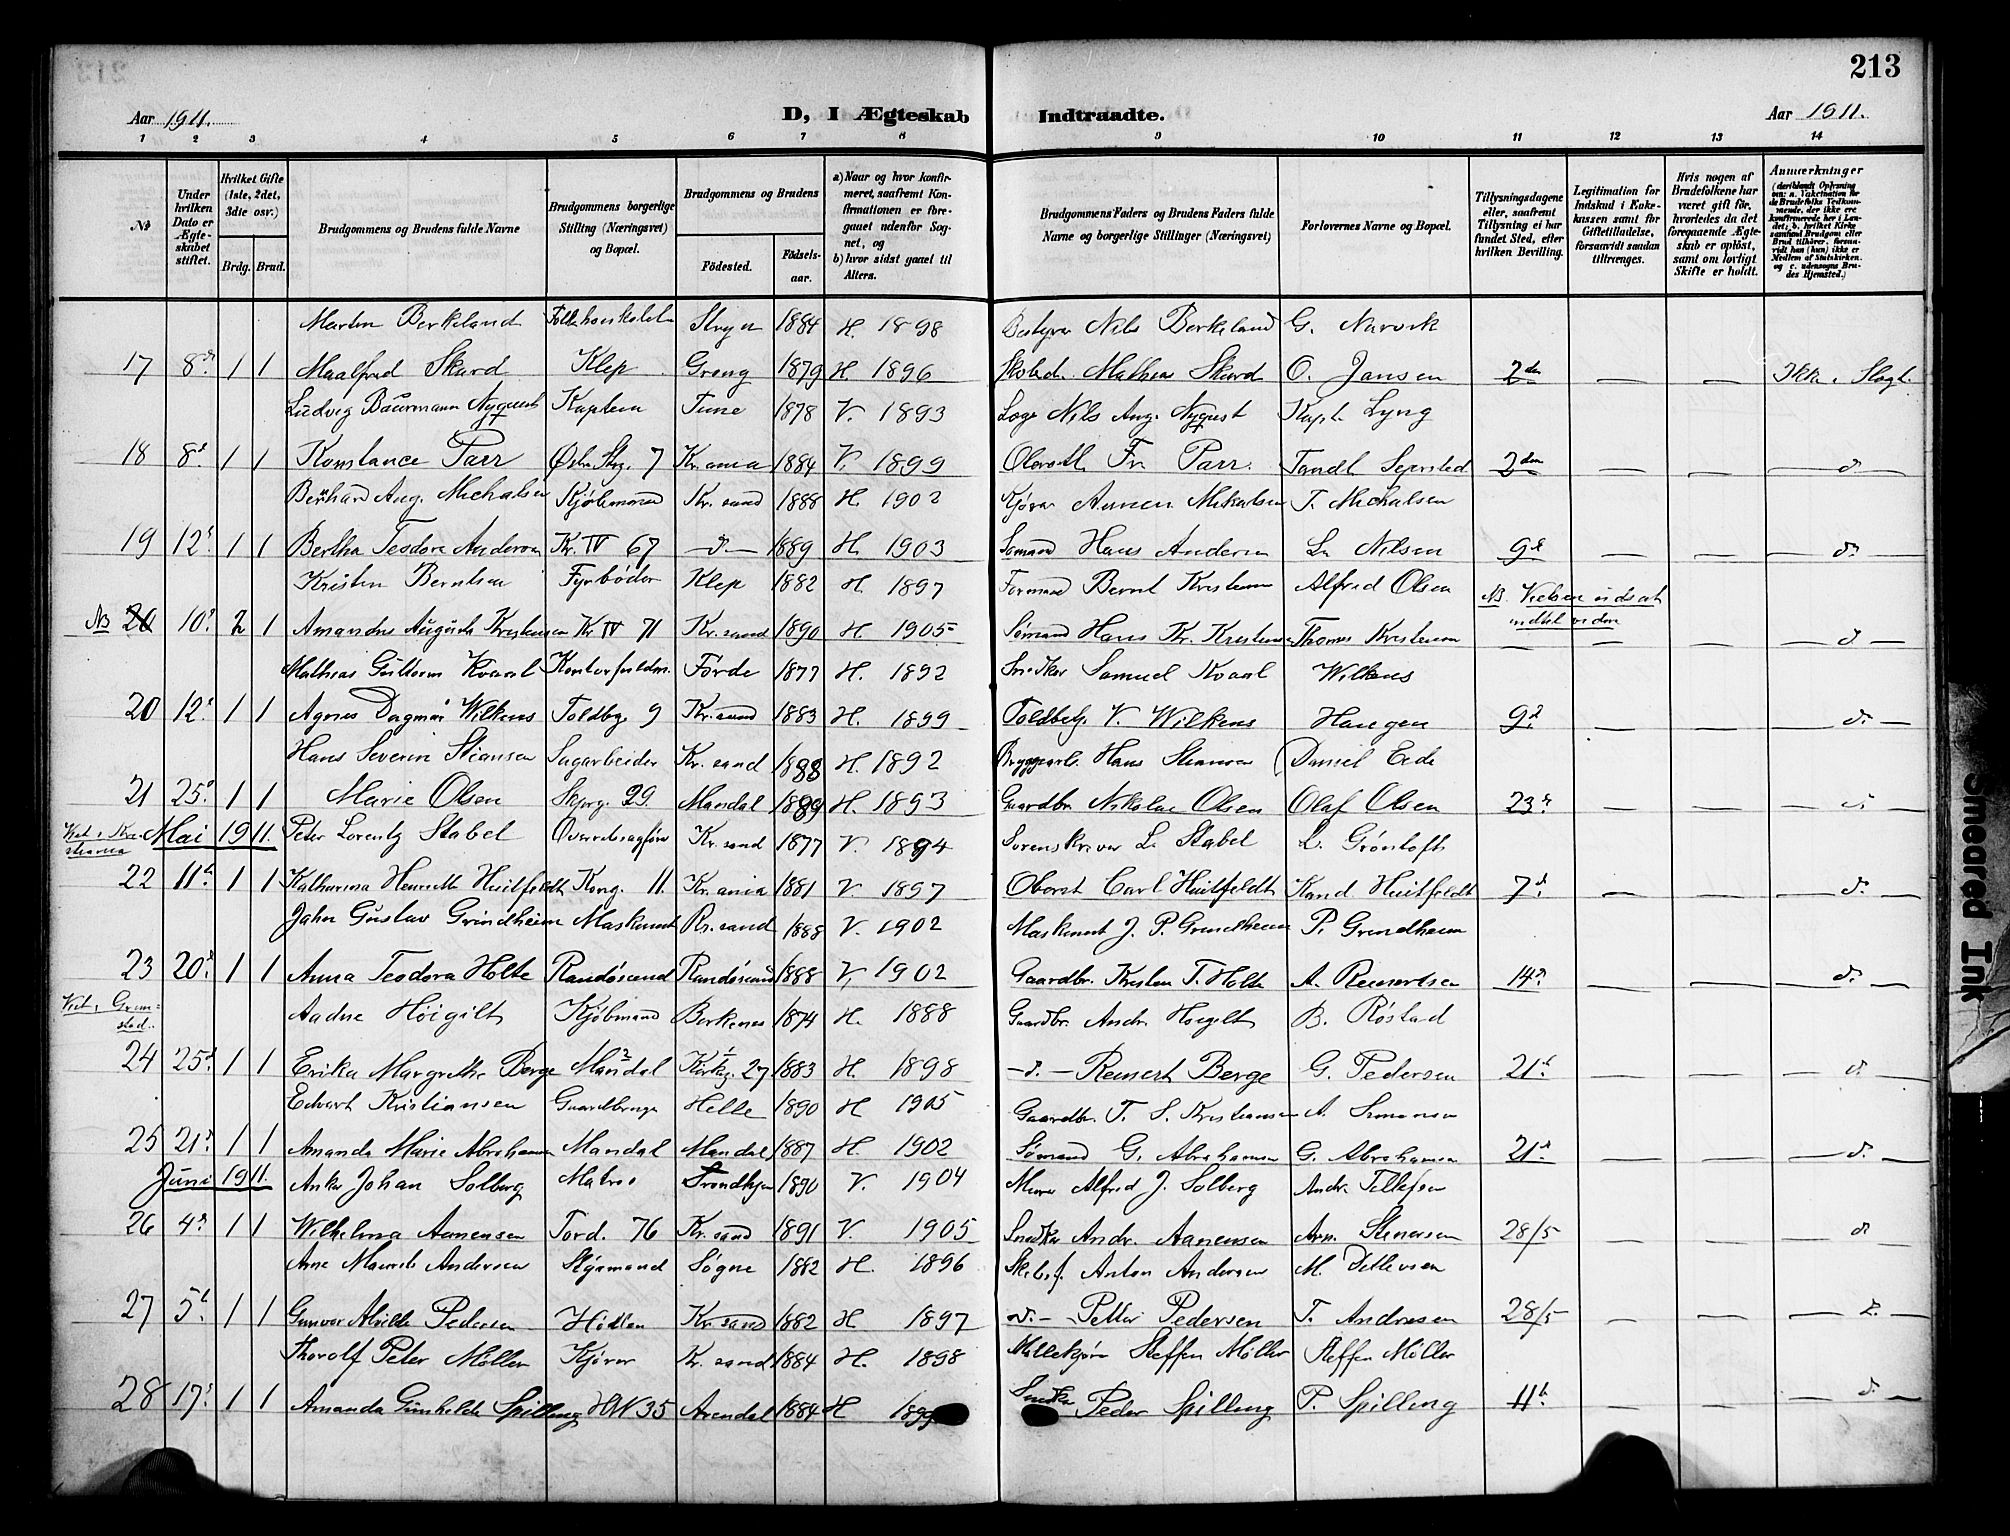 213
Aar 1911. D, I Ægteskab Indtraadte. Aar 1911.
1 2 3 4 5 6 7 8 9 10 11 12 13 14
№
Under hvilken Dato er Ægteskabet stiftet.
Hvilket Gifte (1ste, 2det, 3die osv.)
Brdg. Brud.
Brudgommens og Brudens fulde Navne
Brudgommens borgerlige Stilling (Næringsvei) og Bopæl.
Brudgommens og Brudens
Fødested. Fødselsaar.
a) Naar og hvor konfirmeret, saafremt Konfirmationen er foregaaet udenfor Sognet, og
b) hvor sidst gaaet til Alters.
Brudgommens Faders og Brudens Faders fulde Navne og borgerlige Stillinger (Næringsvei)
Forlovernes Navne og Bopæl.
Tillysningsdagene eller, saafremt Tillysning ei har fundet Sted, efter hvilken Bevilling.
Legitimation for Indskud i Enkekassen samt for Giftetilladelse, forsaavidt saadan tiltrænges.
Hvis nogen af Brudefolkene har været gift før, hvorledes da det foregaaende Ægteskab er opløst, samt om lovligt Skifte er holdt.
Anmærkninger
Martin Berkeland Stryn 1884 H. 1898 Bestyrer Nils Berkeland G. Narvik
17 8d. 1 1 Maalfrid Skard Klep Grong 1879 H. 1896 Mathias Skard O. Jansen 2den — — Ikke i Slægt.
Ludvig Baurmann Nyquist Kaptein Tune 1878 V. 1893 Læge Nils Aug. Nyquist Kapt. Lyng
18 8d. 1 1 Konstance Parr Østre Strg. 7 Kr.ania 1884 V. 1899 Oberstl. Fr. Parr. Tandl. Sejersted 2den — — d.
Bernhard Aug. Michalsen Kjøbmand Kr.sand 1888 H. 1902 Mikalsen T. Michalsen
19 12d. 1 1 Bertha Teodora Andersen Kr. IV 67 —d.— 1889 H. 1903 Sømand Hans Andersen L. Nilsen 9d — — d.
Kristen Berntsen Fyrbøder Klep 1882 H. 1897 Formand Bernt Kristensen Alfred Olsen NB. Vielsen udsat
indtil videre
NB 20 10d. 2 1 Amanda Augusta Kristensen Kr. IV 71 Kr.sand 1890 H. 1905 Sømand Hans Kr. Kristensen Thomas Kristensen — — — d —
Mathias Guttorm Kvaal Kontorfuldm. Førde 1877 H. 1892 Snedker Samuel Kvaal Wilkens
20 12d. 1 1 Agnes Dagmar Wilkens Toldbg. 9 Kr.sand 1883 H. 1899 Toldbetj. V. Wilkens Haugen 9d. — — d. —
Hans Severin Stiansen Sagarbeider Kr.sand 1888 H. 1892 Bryggearb. Hans Stiansen Daniel Eide
21 25d. 1 1 Marie Olsen Skjerg. 29. Mandal 1889 H. 1893 Gaardbr. Nikolai Olsen Olaf Olsen 23d. — — d.
Mai 1911. Peter Lorentz Stabel Overretssagfører Kr.sand 1877 V. 1894 Sorenskriver L. Stabel L. Grøntoft
Viet i Kristiania
22 11te 1 1 Katharina Henriette Huitfeldt Kong. 11. Kr.ania 1881 V. 1897 Oberst Carl Huitfeldt Kand. Huitfeldt 7d. — — d.
Jahn Gustav Grindheim Maskinist Kr.sand 1888 V. 1902 Maskinist J. P. Grindheim P. Grindheim
23 20d. 1 1 Anna Teodora Holte Randøsund Randøsund 1888 V. 1902 Gaardbr. Kristen T. Holte A. Reinertsen 14d. — — d.
Viet i Grimstad. Aadne Høigilt Kjøbmand Berkenes 1874 H. 1888 Gaardbr. Andr. Høigilt B. Røstad
24 25d. 1 1 Erika Margrethe Berge Mandal Kirkeg. 27 1883 H. 1898 —d.— Reinert Berge G. Pedersen 21d. — — d
Edvart Kristiansen Gaardbruger Helle 1890 H 1905 Gaardbr. T. S. Kristiansen A. Simonsen
25 21d. 1 1 Amanda Marie Abrahamsen Mandal Mandal 1887 H. 1902 Sømand G. Abrahamsen G. Abrahamsen 21d — — d.
Juni 1911. Anker Johan Solberg Matros Trondhjem 1890 V. 1904 Murer Alfred J. Solberg Andr. Tellefsen
26 4d. 1 1 Wilhelmine Aanensen Tord. 76 Kr.sand 1891 V. 1905 Snedker Andr. Aanensen Arn. Stenersen 28/5 — — d
Arne Andersen Styrmand Søgne 1882 H. 1896 Anton Andersen M. Ditlevsen
27 5t. 1 1 Gunvor Alvilde Pedersen Kr.sand 1882 H 1897 d.— Petter Pedersen T. Andresen 28/5 — — d.
Thorolf Peter Møller Kjører Kr.sand 1884 H. 1898 Steffen Møller Steffen Møller
28 17d. 1 1 Amanda Gunhilda Spilling 35 Arendal 1884 H 1899 Snedker Peder Spilling P. Spilling 11t. — — d. —
Smeared Ink